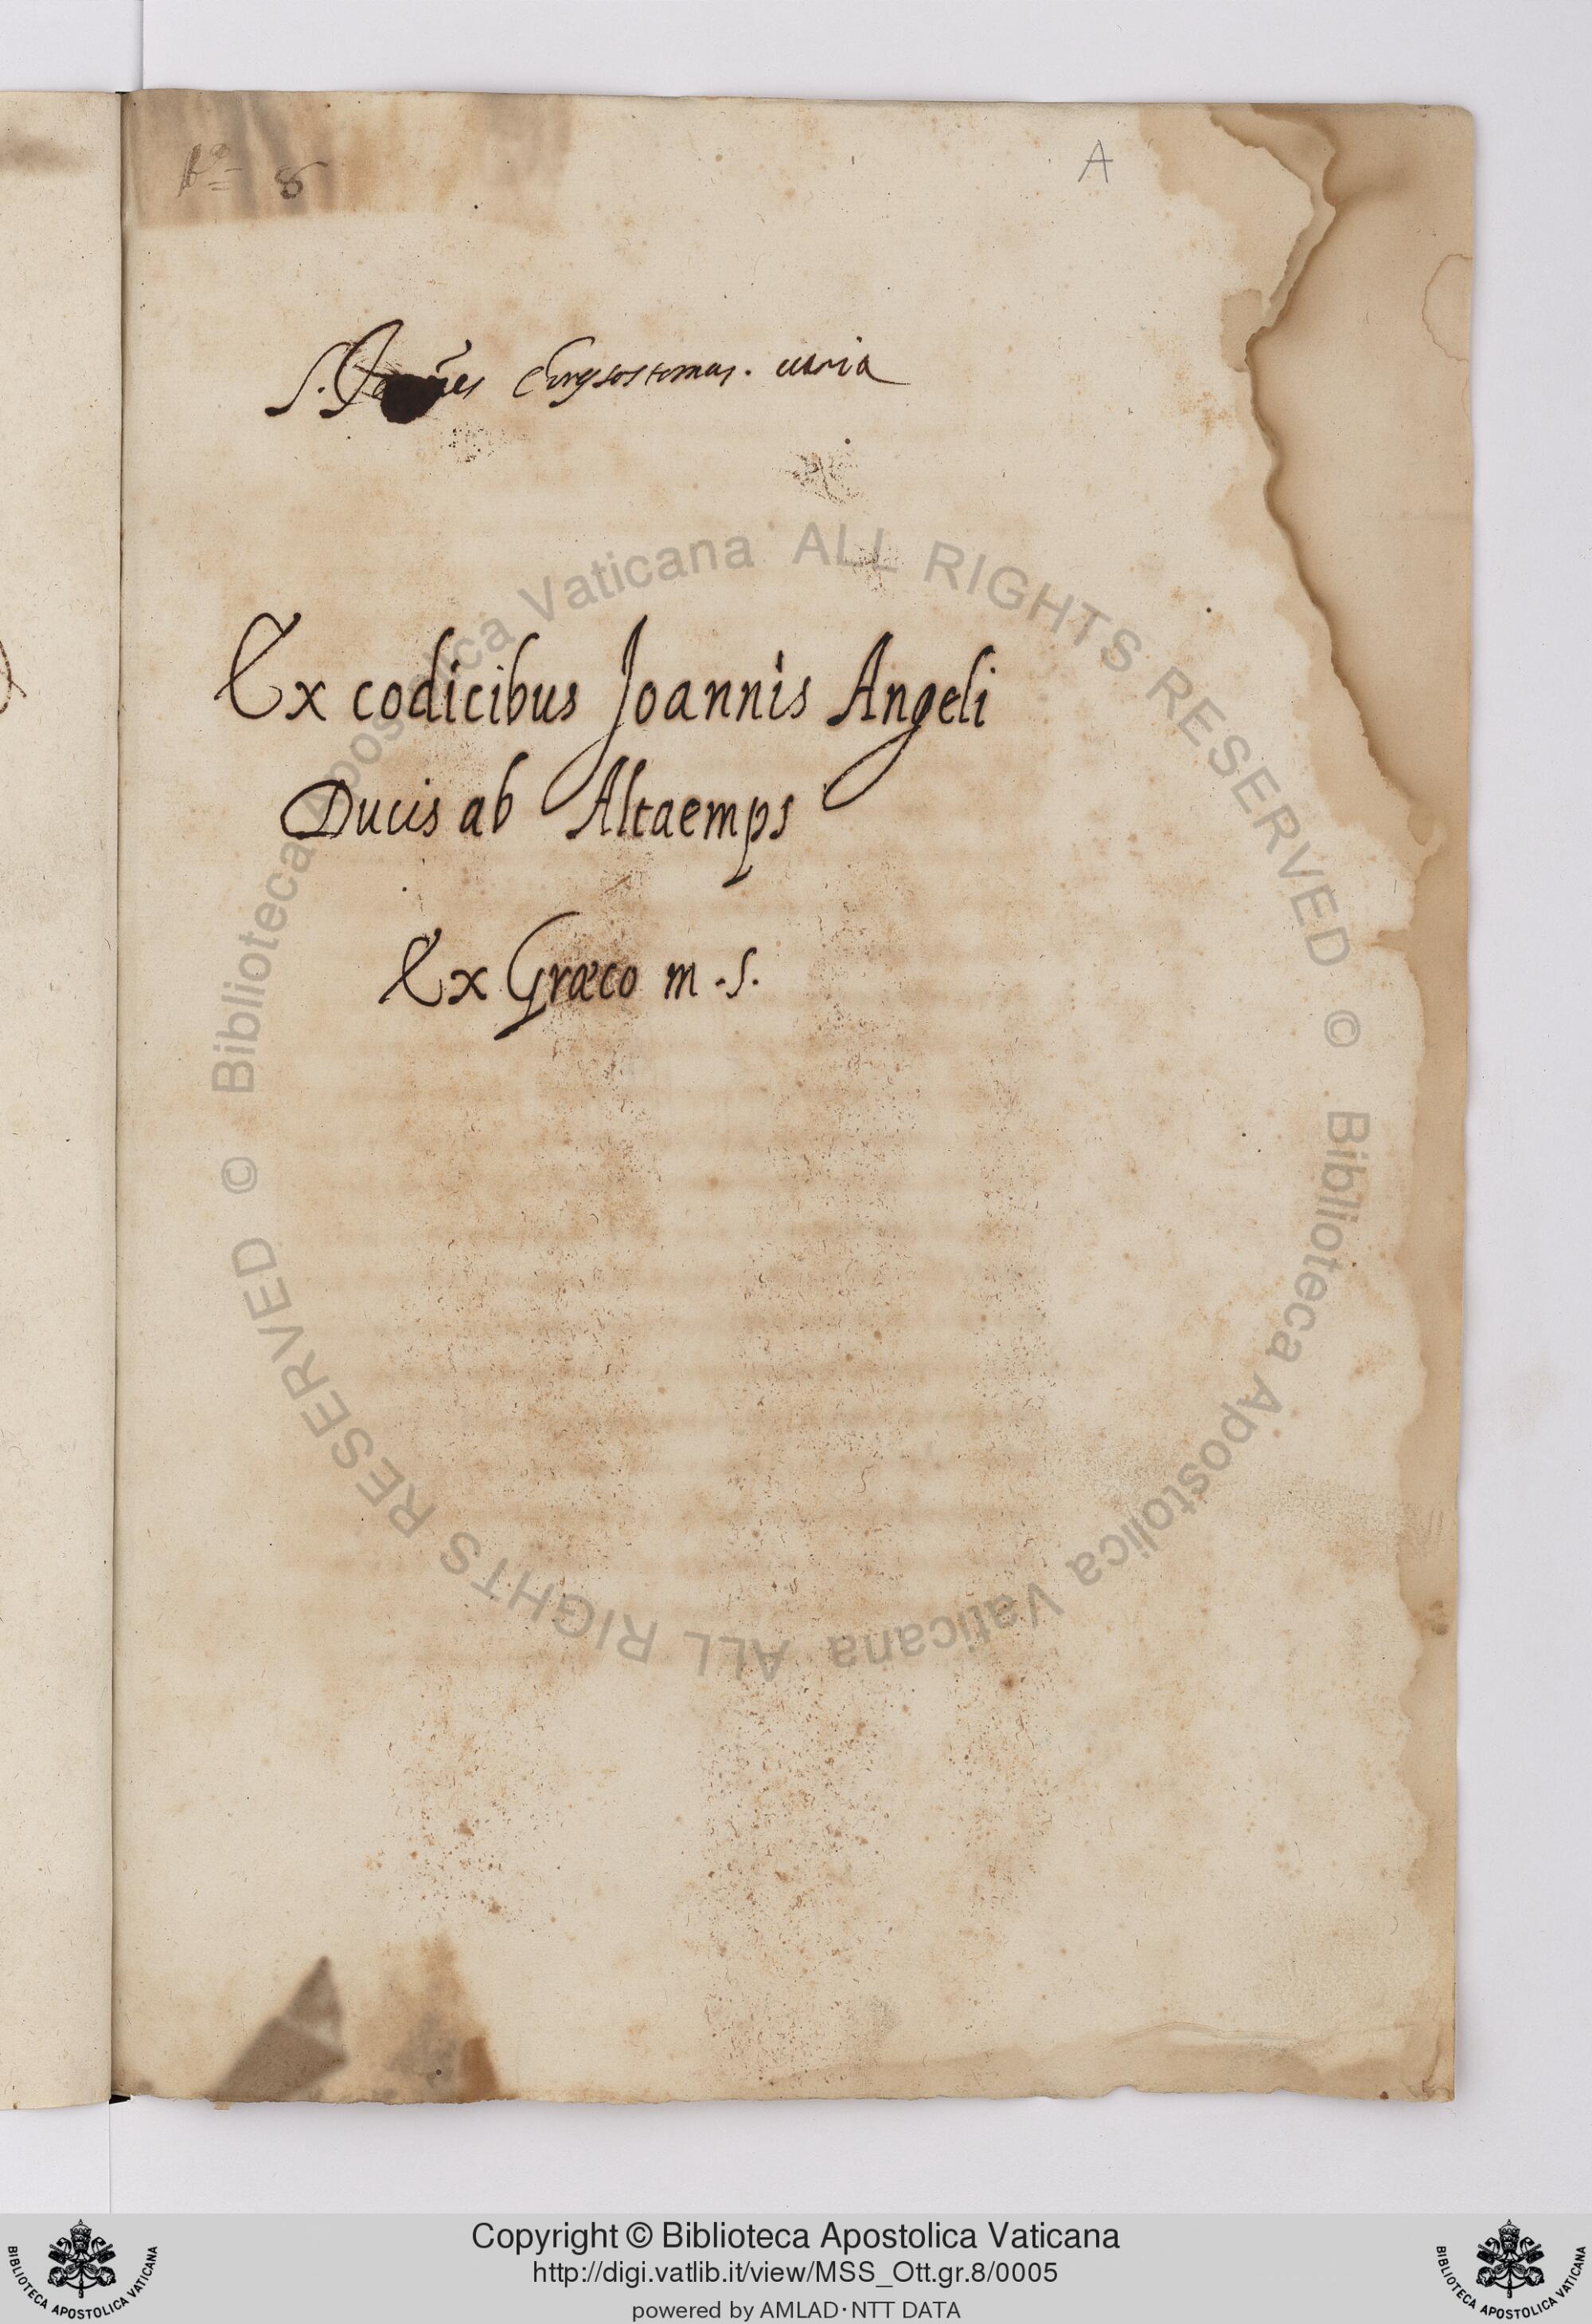 8
A
S. Joañes Chrysostomus. uaria
Ex codicibus Joannis Angeli
Ducis ab Altaemps
Ex Græco m.s.
© Biblioteca Apostolica Vaticana ALL RIGHTS RESERVED
© Biblioteca Apostolica Vaticana ALL RIGHTS RESERVED
BIBLIOTECA APOSTOLICA VATICANA
Copyright © Biblioteca Apostolica Vaticana
http://digi.vatlib.it/view/MSS_Ott.gr.8/0005
powered by AMLAD·NTT DATA
BIBLIOTECA APOSTOLICA VATICANA